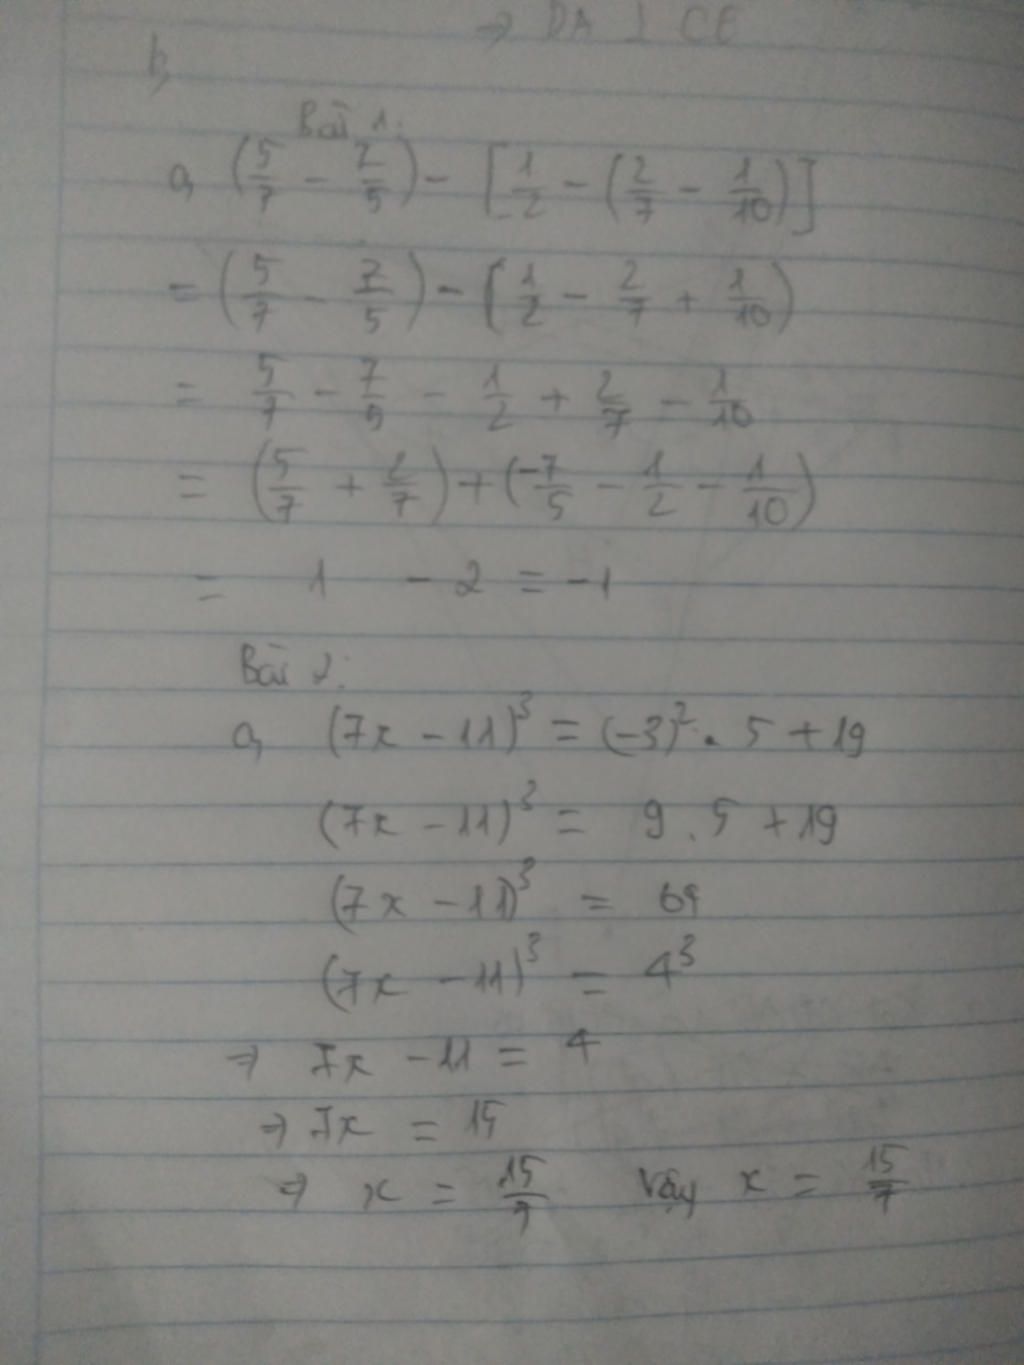 → DA ⊥ CE
b,
Bài 1:
a, (5/7 - 7/5) - [1/2 - (2/7 - 1/10)]
= (5/7 - 7/5) - (1/2 - 2/7 + 1/10)
= 5/7 - 7/5 - 1/2 + 2/7 - 1/10
= (5/7 + 2/7) + (-7/5 - 1/2 - 1/10)
= 1 - 2 = -1
Bài 2:
a, (7x - 11)³ = (-3)² . 5 + 19
(7x - 11)³ = 9 . 5 + 19
(7x - 11)³ = 64
(7x - 11)³ = 4³
⇒ 7x - 11 = 4
⇒ 7x = 15
⇒ x = 15/7 Vậy x = 15/7